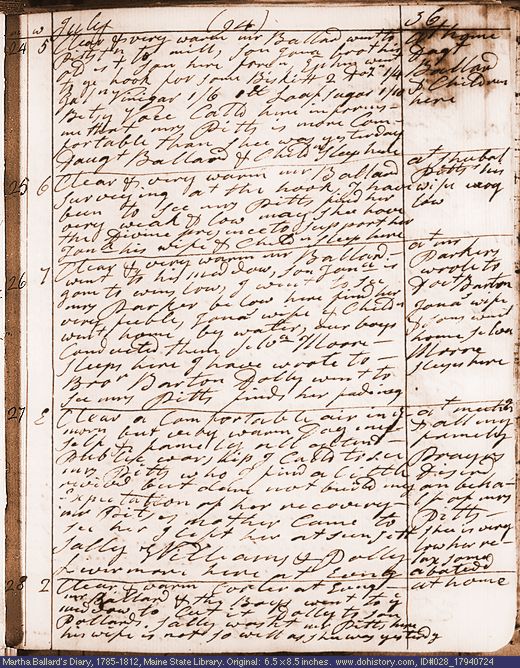 July (94)
24 5 Clear & very warm mr Ballard went to
to mill, son Jona
old is &
to ye hook for some Biskitt 2 Doz 1/4
Vinegar 1/6 Loaf sugar 1/10
Betsy calld here informs
me that mrs Pitts is more Com
fortable than shee was yesterday
Daugt Ballard & Childn sleep here
at home
Dagt
Ballard
& Children
here
25 6 Clear & very warm mr Ballard
surveying at the hook I have
been to see mrs Pitts find her
very weak & low may shee have
the Divine presence to support her
Jona his wife & Childn sleep here
at Shubal
Pitts his
wife very
low
26 7 Clear & very warm mr Ballard
went to his meddow, son Jona is
gone to winslow, I went to see
mrs Parker below here find her
very feeble, Jonas wife & Childn
went home by water, our boys
Conducted them Silva Moore
sleeps here I have wrote to
Bror Barton Dolly went to
see mrs Pitts finds her fadeing
at mr
Parkers
wrote to
Doct Barton
Jonas wife
& sons went
home Silva
Moore
sleeps here
27 E Clear a Comfortable air in ye
morn but very warm Day my
self & family all attend
Publick worship I Calld to see
mrs Pitts at noon find a little
revived but dare not build my
Expectation of her recovery
mr Pitts mother Came to
see her I left her at sunsett
Sally Williams & Dolly
Livermore here at Evng
at meeting
& all my
family
Prayrs
Desird
on behalf
of mrs
Pitts
shee is very
low
28 2 Clear & warm Cooler at Evng
mr Ballard & the Boys went to ye
meddow to Cutt Sally to
Pollard, Sally watcht mrs Pitts here
his wife is not so well as shee was yesterdy
at home
Martha Ballard's Diary, 1785-1812, Maine State Library. Original: 6.5 x 8.5 inches. www.dohistory.com, ID#028_17940724